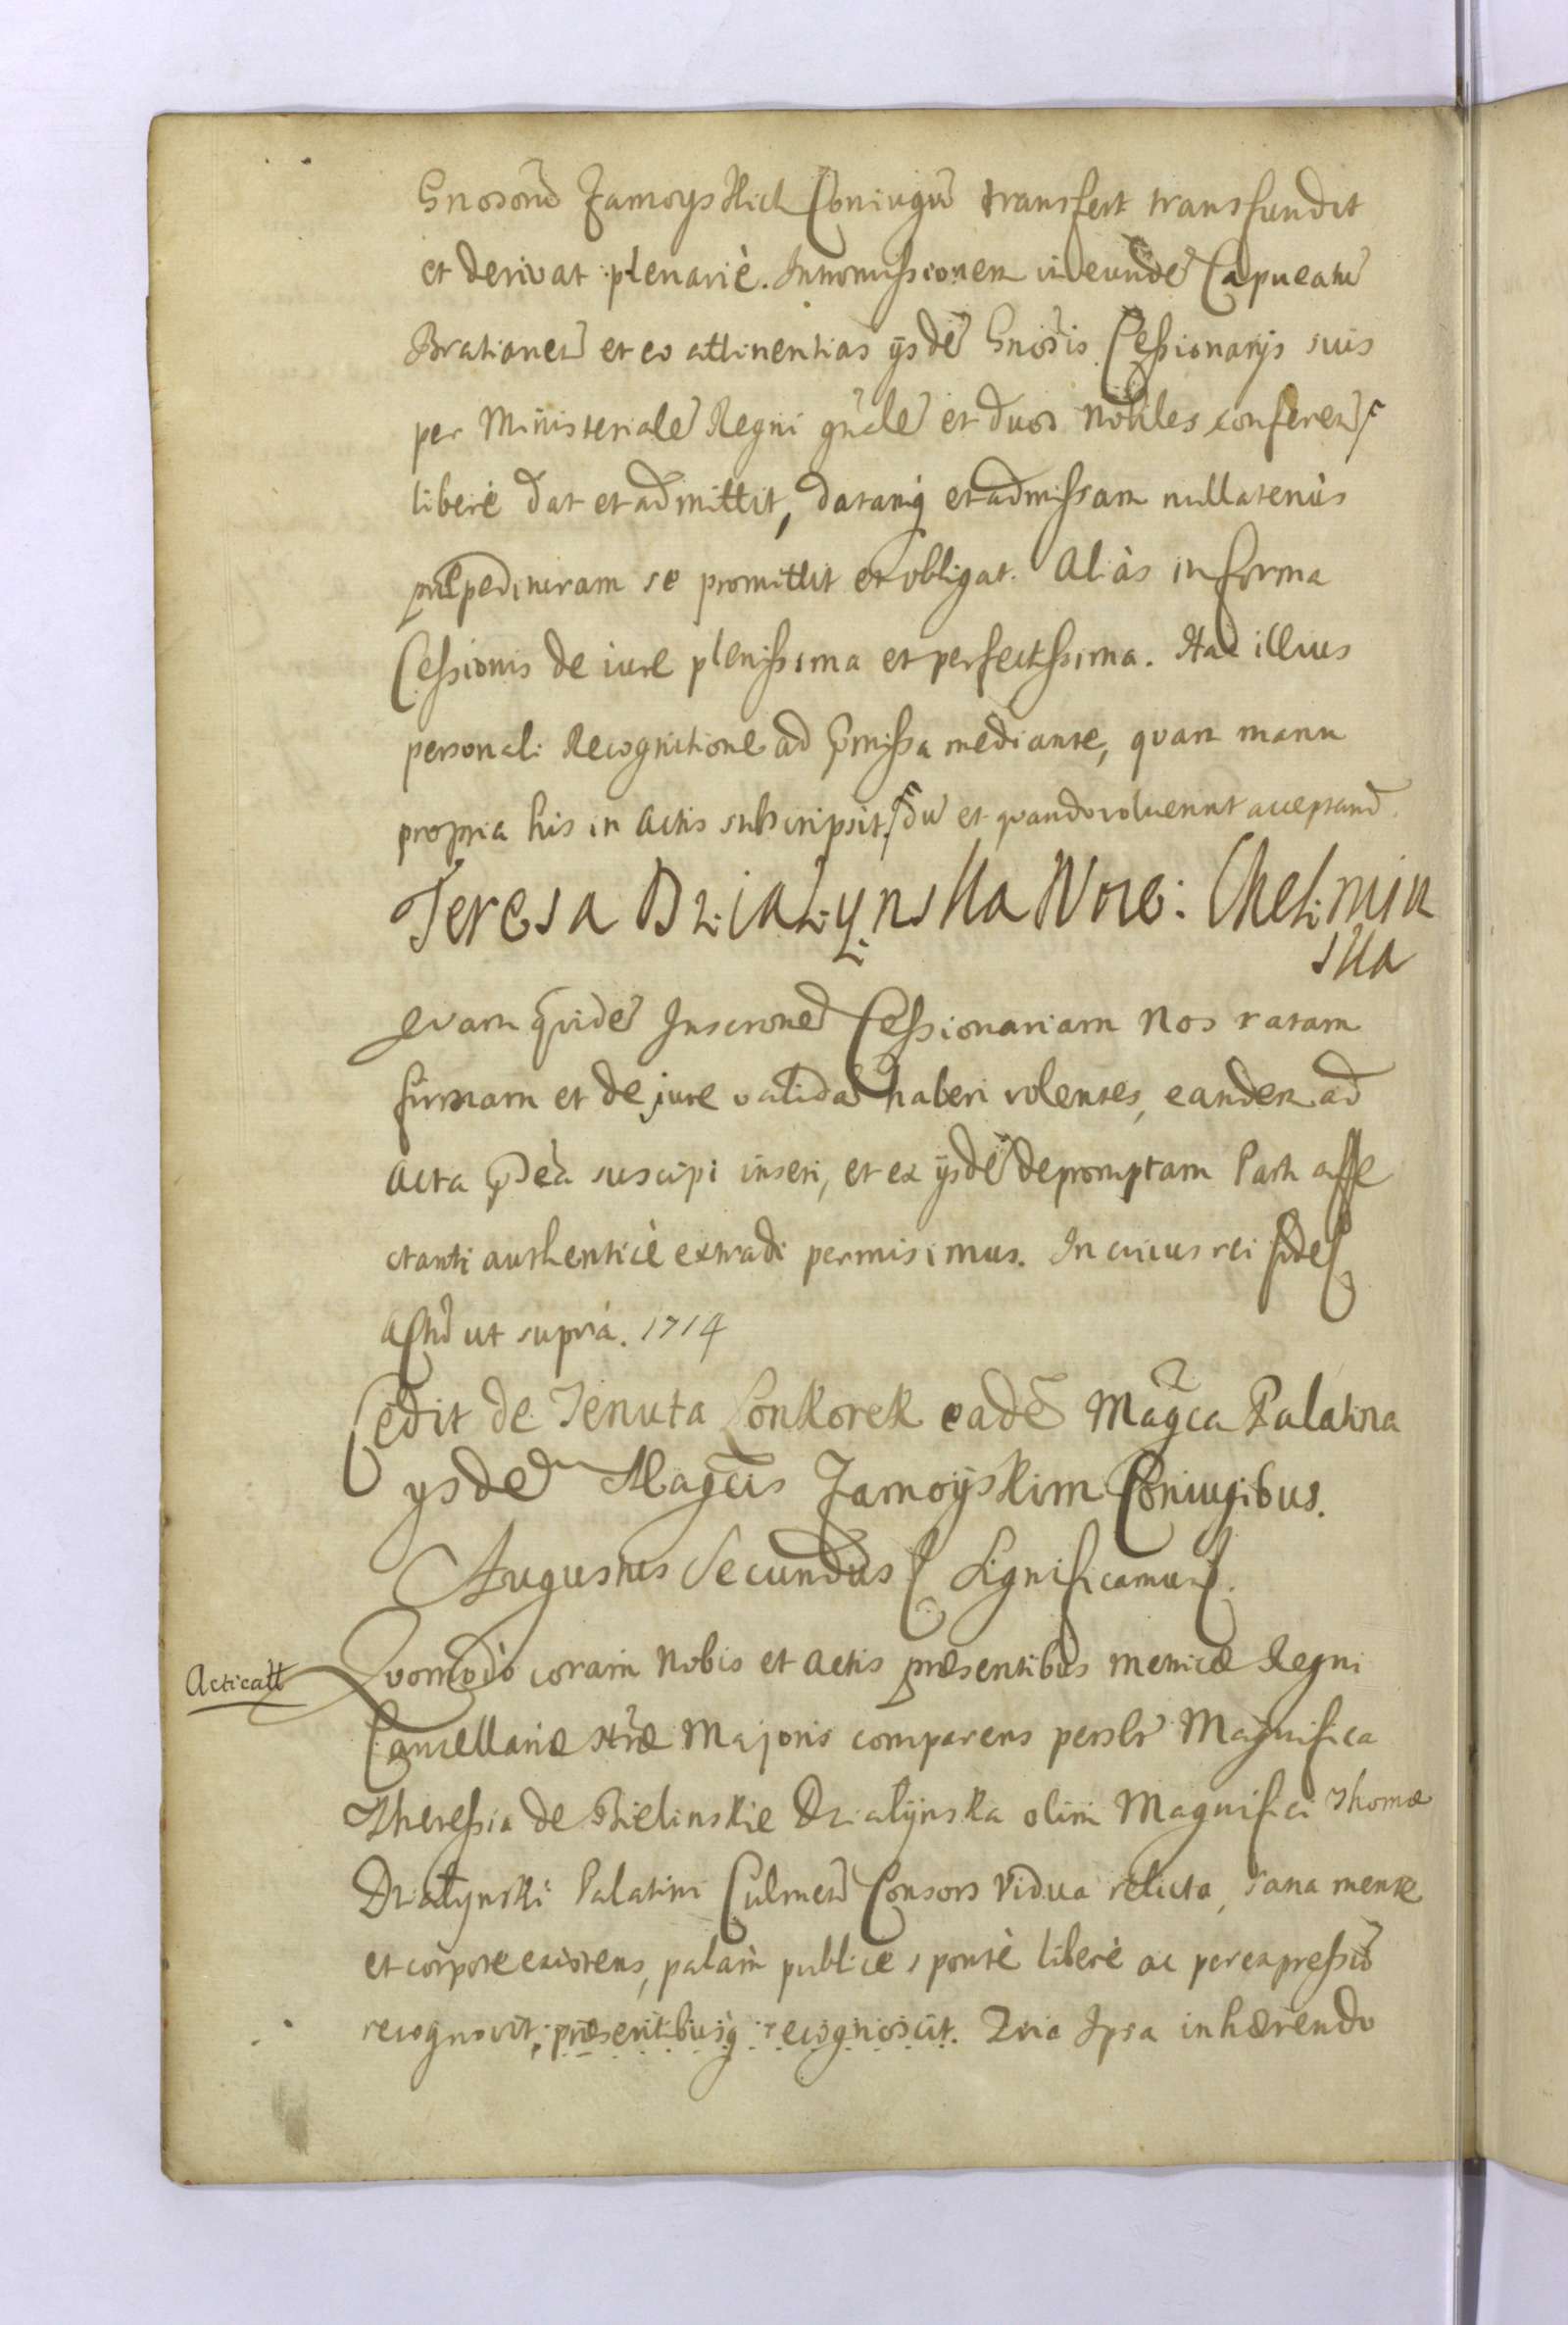 Gnosorũ Zamoyskich Coniugũ transfert transfundit
et derivat plenariè. Intromissionem in eundẽ Capneatũ
Bratianeñ et eo attinentias ijsdẽ Gnosis Cessionarijs suis
per Ministerialẽ Regni gnãlẽ et duos Nobiles confereñ
liberè dat et admittit, datamq et admissam nullatenùs
præpedituram se promittit et obligat. Aliàs in forma
Cessionis de iure plenissima et perfectissima. Hac illius
personali Recognitione ad p̃missa mediante, quam manu
propria his in Actis subscripsit. dũ et quando voluerint acceptand.
Teresa Działynska Woie: Chełmin
ska
Quam quidẽ Inscr̃onem Cessionariam Nos ratam
firmam et de jure validã haberi volentes, eandem ad
Acta p̃dẽa suscipi inseri, et ex ijsdẽ depromptam Parti affe
ctanti authenticè extradi permisimus. In cuius rei fidẽ
Actũ ut suprà. 1714
Cedit de Tenuta Lonkorek eadẽ Mag̃ca Palatina
ysdẽ Mag̃cis Zamoÿskim Coniugibus.
Augustus Secundus Significamus.
Acticatt
Quomodò coram Nobis et Actis præsentibus metricæ Regni
Cancellariæ Ñræ Majoris comparens persl̃r Magnifica
Theressia de Bielinskie Działÿnska olim Magnifici Thomæ
Działynski Palatini Culmeñ Consors Vidua relicta, sana mente
et corpore existens, palàm publicè spontè liberè ac per expressũ
recognovit, præsentibusq recognoscit. Quia Ipsa inhærendo